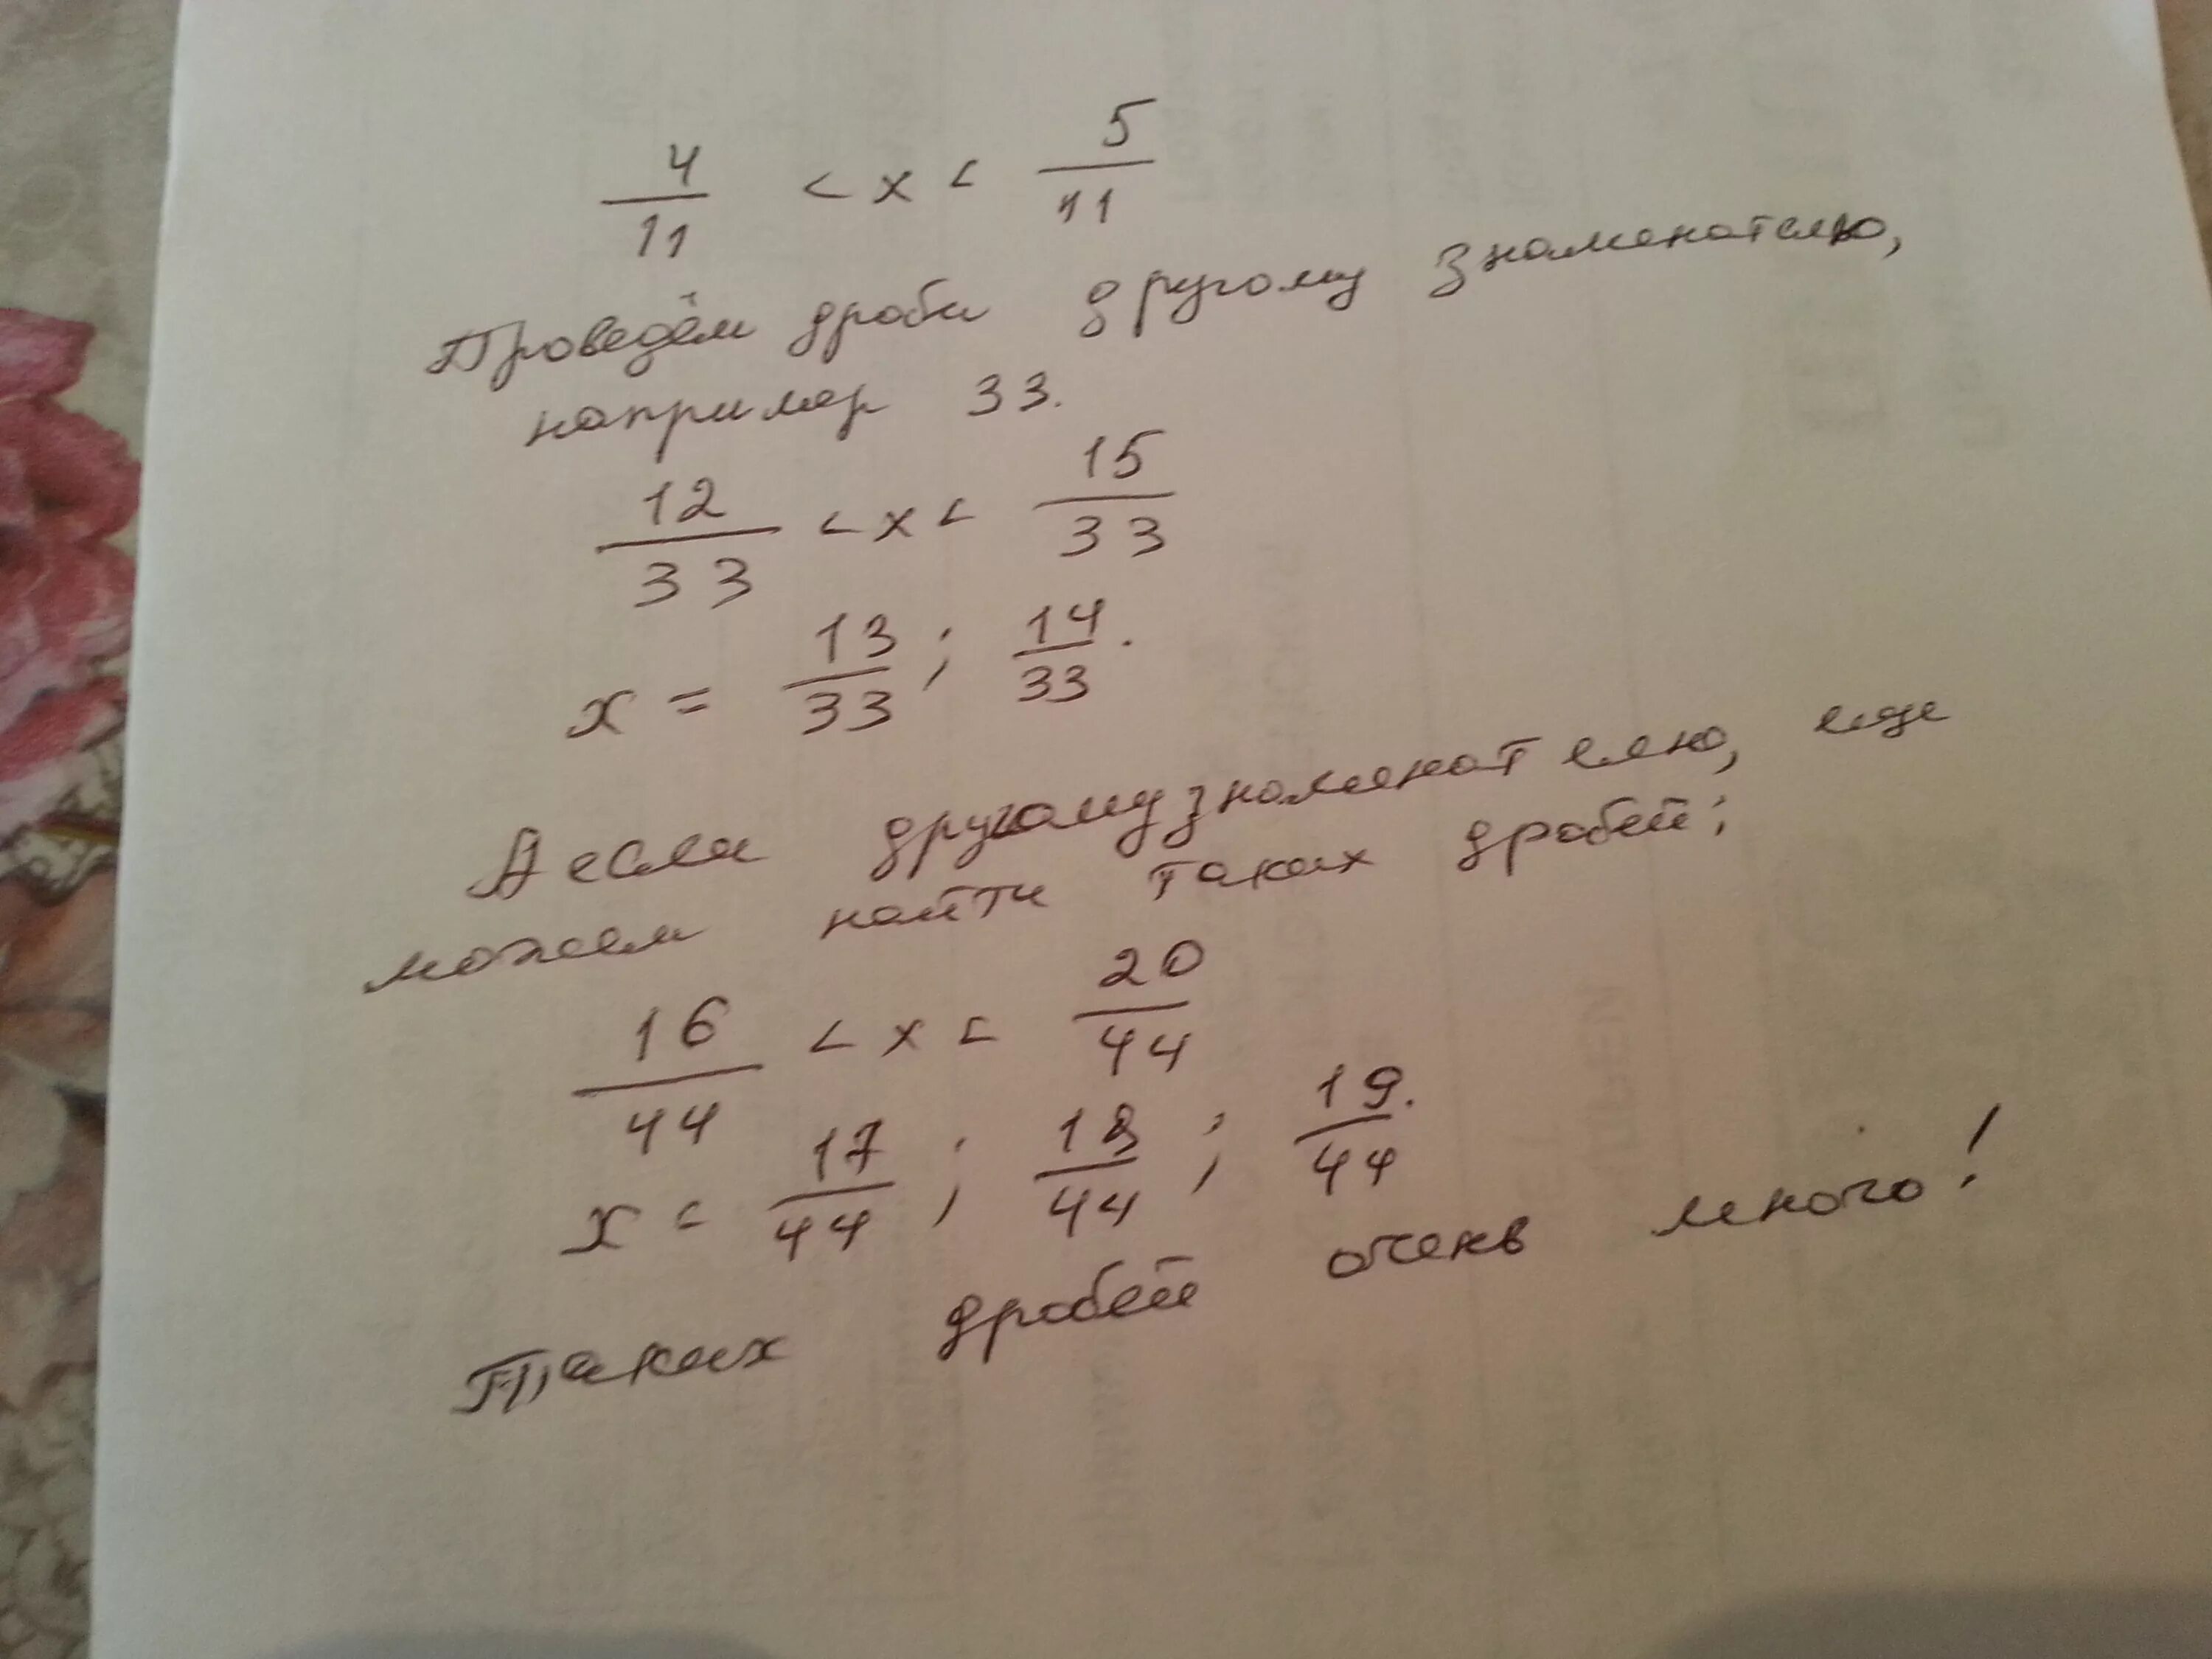 4/11 < x < 5/11
Проведём дроби другому знаменателю,
например 33.
12/33 < x < 15/33
x = 13/33; 14/33.
А если другому знаменателю, еще
можем найти таких дробей:
16/44 < x < 20/44
x = 17/44; 18/44; 19/44.
Таких дробей очень много!